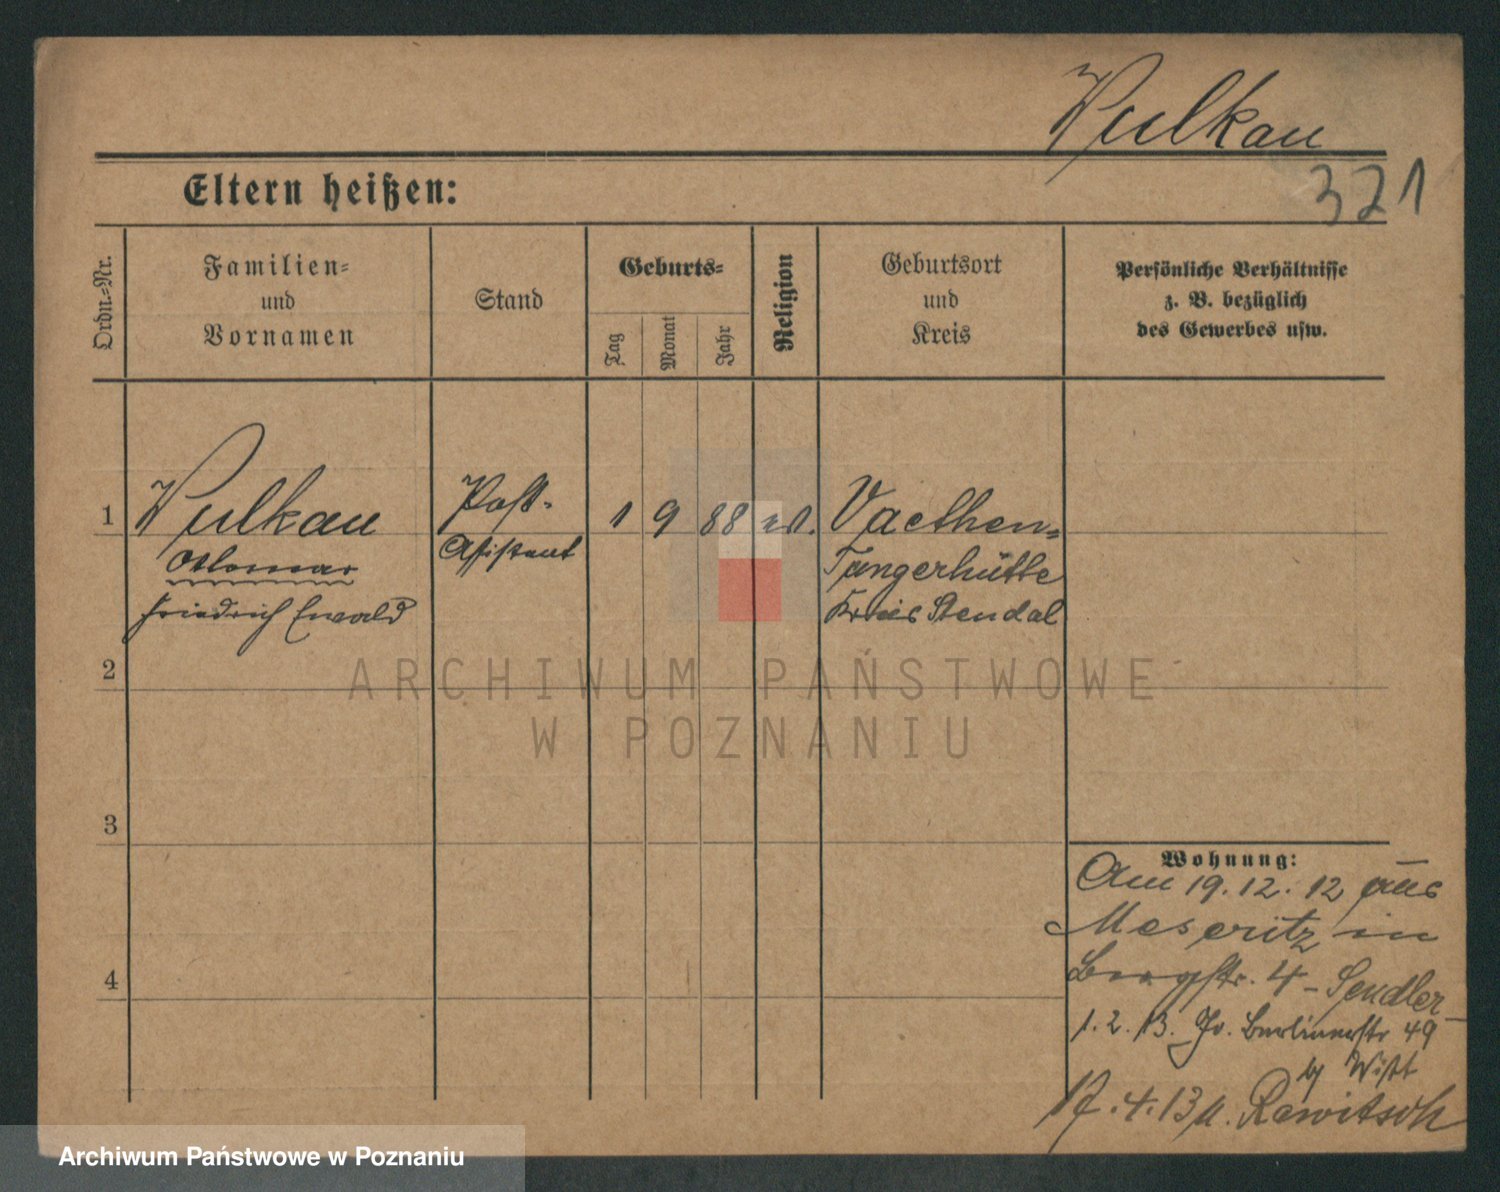 Wulkau
321
Eltern heißen:
Ordn.-Nr.
Familien-
und
Vornamen
Stand
Geburts-
Tag
Monat
Jahr
Religion
Geburtsort
und
Kreis
Persönliche Verhältnisse
z. B. bezüglich
des Gewerbes usw.
1
Wulkau
Othomar
Friedrich Ewald
Post-
Assistent
1
9
88
ev.
Vaethen-
Tangerhütte
Kreis Stendal
2
3
4
Wohnung:
Am 19.12.12 aus
Meseritz in
Bergstr. 4 - Sendler
1.2.13. Berlinerstr 49
b/ Witt
17.4.13 n. Rawitsch
ARCHIWUM PAŃSTWOWE
W POZNANIU
Archiwum Państwowe w Poznaniu